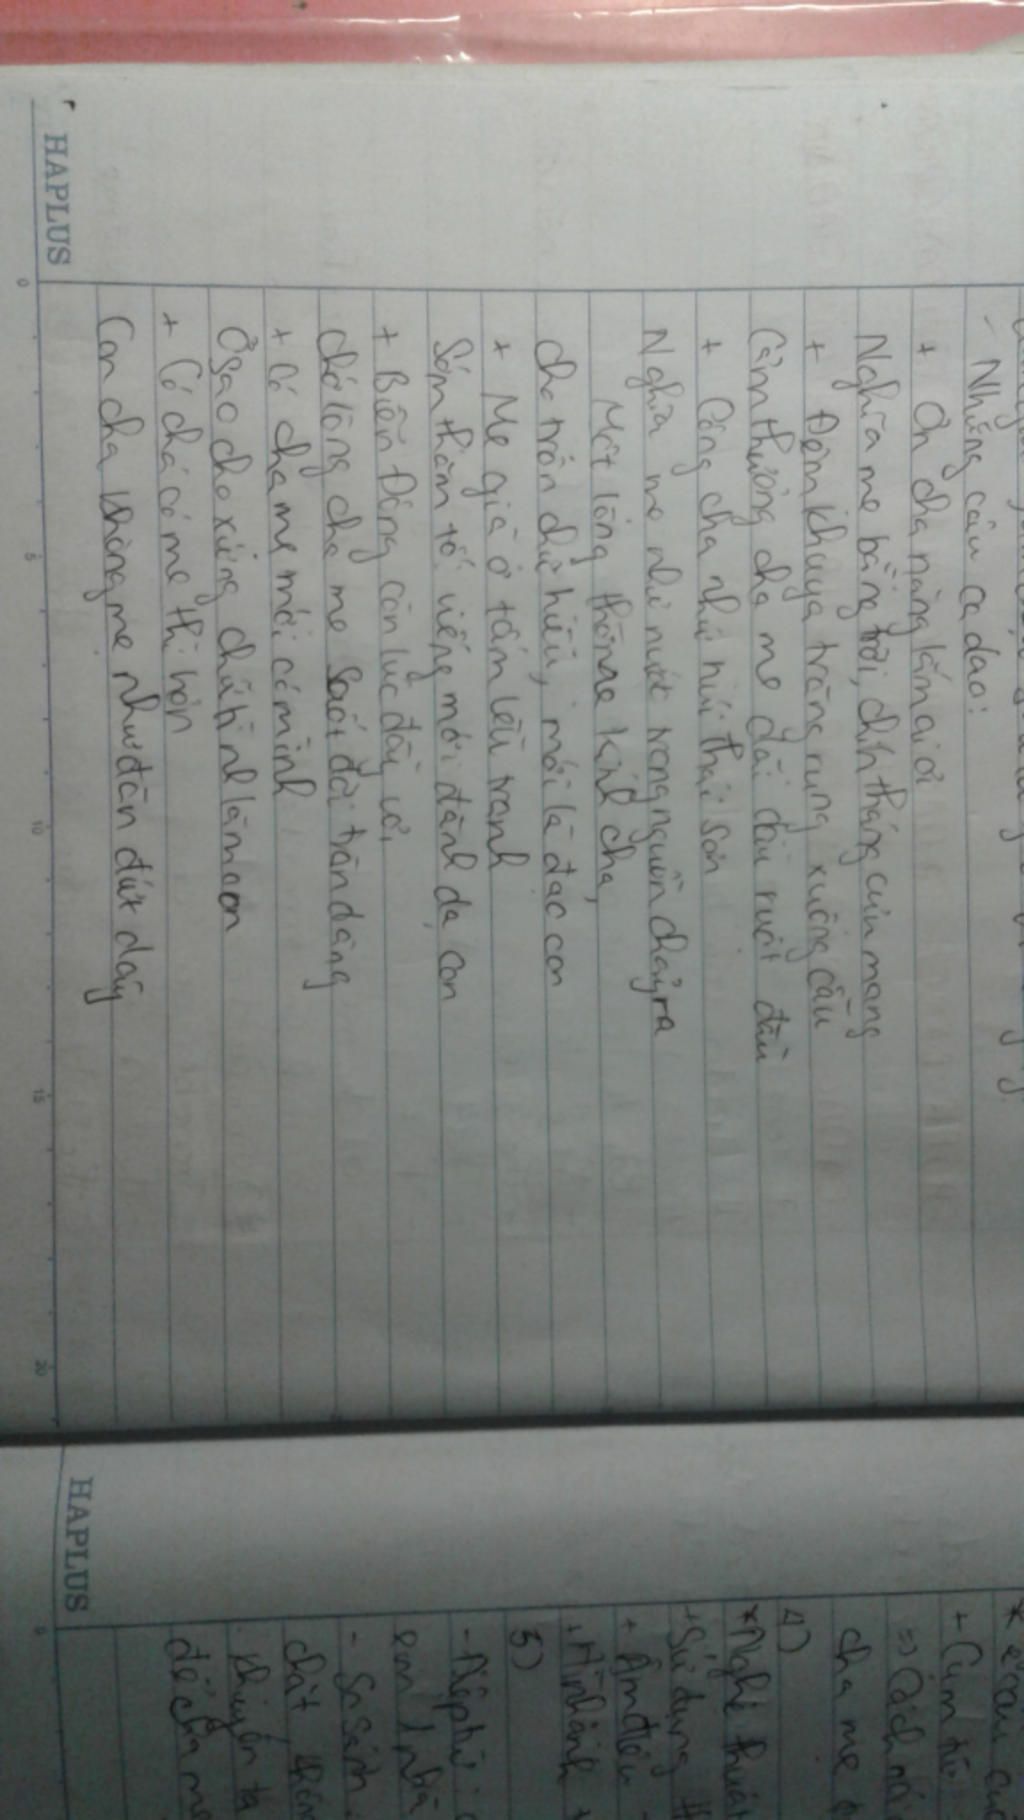 - Những câu ca dao:
+ Ơn cha nặng lắm ai ơi
Nghĩa mẹ bằng trời, chín tháng cưu mang
+ Đêm khuya trăng rụng xuống cầu
Cảm thương cha mẹ dãi dầu ruột đau
+ Công cha như núi thái sơn
Nghĩa mẹ như nước trong nguồn chảy ra
Một lòng thờ mẹ kính cha,
cho tròn chữ hiếu, mới là đạo con
+ Mẹ già ở tấm lều tranh
Sớm thăm tối viếng mới đành dạ con
+ Biển Đông còn lúc đầy vơi,
chớ lòng cha mẹ suốt đời tràn dâng
+ Có cha mẹ mới có mình
Ở sao cho xứng chữ tình làm con
+ Có cha có mẹ thì hơn
Con cha không mẹ như đàn đứt dây
HAPLUS
0 5 10 15 20
+ Cụm từ
=> Cách nói
cha mẹ
4)
* Nghệ thuật
+ Sử dụng
+ Âm điệu
+ Hình ảnh
5)
- Điệp
- So sánh
chặt
khuyên ta
để cha mẹ
HAPLUS
0